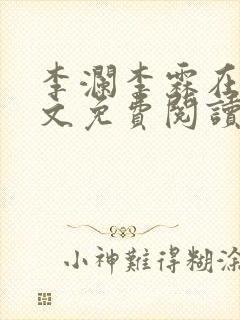 李瀾李霖在
文免費閱讀
小神難得糊涂